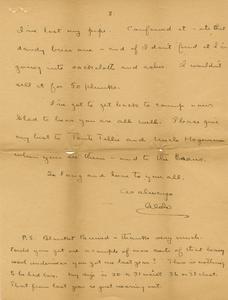 8
I've lost my pipe. Confound it - its that
dandy briar one - and if I don't find it I'm
going into sackcloth and ashes. I wouldn't
sell it for 50 plunks.
I've got to get back to camp now.
Glad to hear you are all well. Please give
my best to Tante Tillie and Uncle
when you see them - and to the
So long and love to you all.
As always
P.S. Blanket Received - thanks very much.
Could you get me a couple of more suits of that heavy
wool underwear you got me last year? There is nothing
to be had here. My size is 30 or 31 waist 36 or 37 chest.
That from last year is just wearing out.